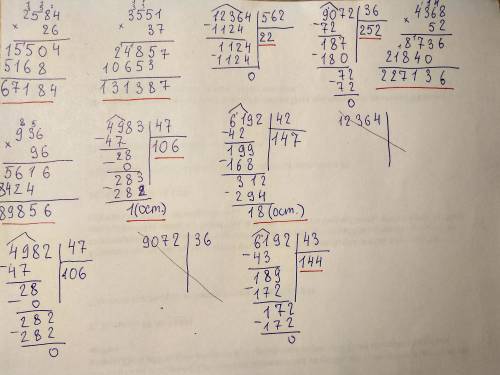 2584
×
26
15504
5168
67184
3551
×
37
24857
10653
131387
12364 | 562
-1124 | 22
1124
-1124
0
9072 | 36
-72 | 252
187
180
72
-72
0
4368
×
52
8736
21840
227136
936
×
96
5616
8424
89856
4983 | 47
-47 | 106
28
-0
283
-282
1(ост.)
6192 | 42
-42 | 147
199
-168
312
-294
18(ост.)
12364
4982 | 47
-47 | 106
28
-0
282
-282
0
9072 | 36
6192 | 43
-43 | 144
189
-172
172
-172
0